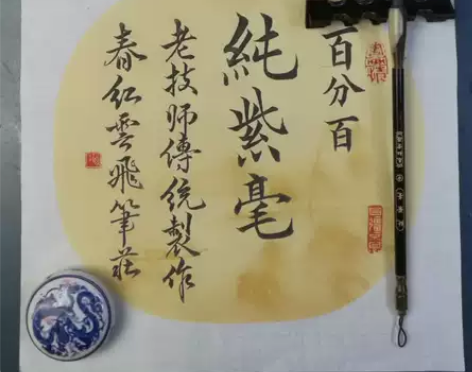 百分百
純紫毫
老技師傳統製作
春紅雲飛筆莊